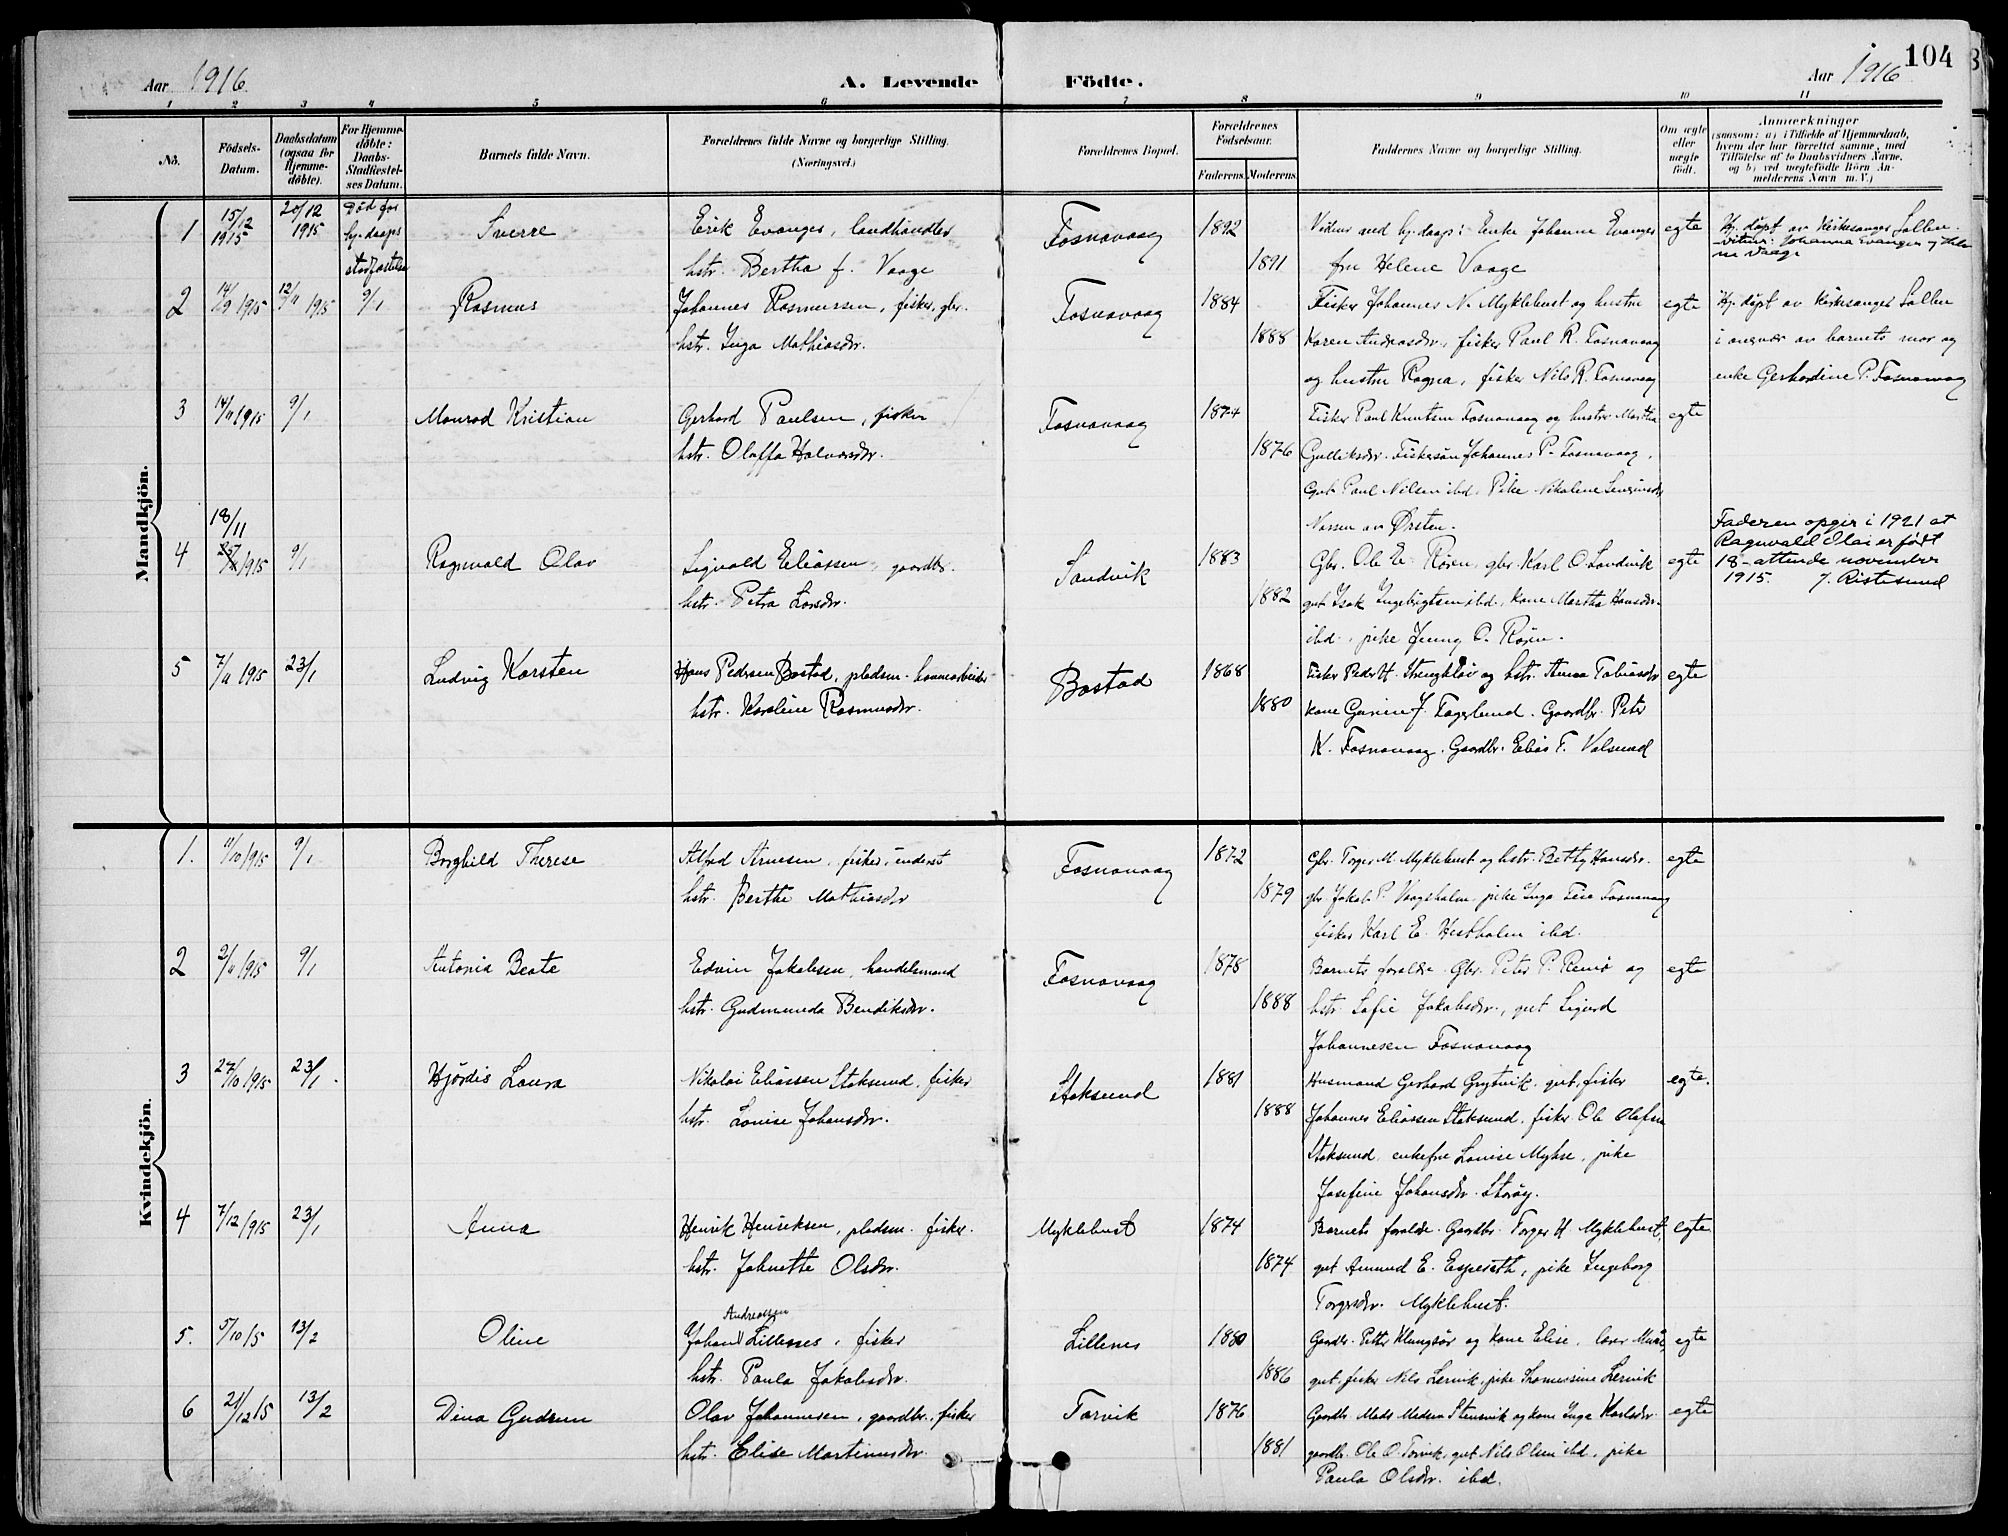 104
Aar 1916.
A. Levende Födte.
Aar 1916
1 2 3 4 5 6 7 8 9 10 11
No.
Födsels-Datum.
Daabsdatum (ogsaa for Hjemme-döbte).
For Hjemme-döbte: Daabs-Stadfæstel-ses Datum.
Barnets fulde Navn.
Forældrenes fulde Navne og borgerlige Stilling. (Næringsvei.)
Forældrenes Bopæl.
Forældrenes Födselsaar.
Faderens. Moderens.
Faddernes Navne og borgerlige Stilling.
Om ægte eller uægte födt.
Anmærkninger
(saasom: a) i Tilfælde af Hjemmedaab,
hvem der har forrettet samme, med
Tilföielse af to Daabsvidners Navne,
og b) ved uægtefödte Börn An-
melderens Navn m. V.)
Mandkjön.
1 15/12 1915 20/12 1915 Död før hj.daaps stadfæstelse Sverre Erik Evanger, landhandler Fosnavaag 1892 Vidner ved hj.daap: Enke Johanne Evanger egte Hj. døpt av Kirkesanger Sollen.
vitner: Johanne Evanger og Hele-
ne Vaage
hstr. Bertha f. Vaage 1891 fru Helene Vaage
2 14/9 1915 12/11 1915 9/1 Rasmus Johannes Rasmussen, fisker, gbr. Fosnavaag 1884 Fisker Johannes N. Myklebust og hustru egte Hj. døpt av Kirkesanger Sollen
hstr. Inga Mathiasdr. 1888 Karen Andreasdr., fisker Paul R. Fosnavaag i nærvær av barnets mor og
og hustru Ragna, fisker Nils R. Fosnavaag enke Gerhardine P. Fosnavaag
3 14/11 1915 9/1 Monrad Kristian Gerhard Paulsen, fisker Fosnavaag 1874 Fisker Paul Knutsen Fosnavaag og hustru Martha egte
hstr. Oluffa Halvorsdr. 1876 Gulliksdr. Fiskersøn Johannes P. Fosnavaag,
Gut Paul Nilsen ibd. Pike Nikoline
av Ørsten.
4 18/11 1915 9/1 Ragnvald Olav Sigvald Eliassen, gaardbr. Sandvik 1883 Gbr. Ole E. Røren, gbr. Karl O. Sandvik egte
Faderen opgir i 1921 at
Ragnvald Olai er født
18 – attende november
1915. J. Ristesund
hstr. Petra Larsdr. 1882 gut Isak Ingebrigtsen ibd., kone Martha Hansdr.
ibd., pike Jenny O. Røren.
5 7/11 1915 23/1 Ludvig Karsten Hans Pedersen Bostad, pladsm. havnearbeider Bostad 1868 Fisker Peder H. og hstr. Anna Tobiasdr egte
hstr. Karoline Rasmusdr. 1880 kone J. Fagerlund. Gaardbr. Peter
K. Fosnavaag. Gaardbr. Elias T. Valsund
Kvindekjön.
1. 11/10 1915 9/1 Borghild Therese Alfred Arnesen, fisker, inderst Fosnavaag 1872 Gbr. Torger M. Myklebust og hstr. Betty Hansdr. egte
hstr. Berthe Mathiasdr 1879 gbr. Jakob P. Vaagsholm, pike Inga Fosnavaag
fisker Karl E. Hestholm ibd.
2 2/11 1915 9/1 Antonia Beate Edvin Jakobsen, handelsmand Fosnavaag 1878 Barnets forældre. Gbr. Peter P. Remø og egte
hstr. Gudmunda Bendiksdr. 1888 hstr. Sofie Jakobsdr., gut Sigurd
Johannesen Fosnavaag
3 27/10 1915 23/1. Hjørdis Laura Nikolai Eliassen Stoksund, fisker Stoksund 1881 Husmand Gerhard Grytvik, gut, fisker egte.
hstr. Lovise Johansdr. 1888 Johannes Eliassen Stoksund, fisker Ole Olafsen
Stoksund, enkefru Lovise Myhre, pike
Josefine Johansdr. Storøy.
4 7/12 1915 23/1 Anna Henrik Henriksen, pladsm. fisker. Myklebust 1874 Barnets forældre. Gaardbr. Torger H. Myklebust, egte.
hstr. Johnette Olsdr. 1874 gut Amund E. Espeseth, pike Ingeborg
Torgersdr. Myklebust.
5. 5/10 15 13/2 Oline Johan Andreassen Lillenes, fisker Lillenes 1880 Gaardbr. Petter Klungsør og kone Elise, lærer egte
hstr. Paula Jakobsdr. 1886 gut, fisker Nils Lervik, pike Thomassine Lervik
6 21/12 15 13/2 Dina Gudrun Olav Johannesen, gaardbr., fisker Torvik 1876 Gaardbr. Mads Madsen Stensvik og kone Inga Karlsdr. egte
hstr. Elise Martinusdr. 1881 gaardbr. Ole O. Torvik, gut Nils Olsen ibd., pike
Paula Olsdr. ibd.